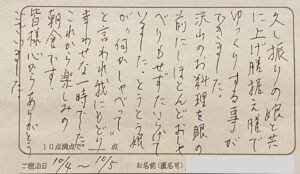 久し振りの娘と共
に上げ膳据え膳で
ゆっくりする事が
できました。
沢山のお料理を眼の
前にしほとんどおしゃ
べりもせずたいらげて
いました。とうとう娘
が〝何かしゃべって〟
と言われ我にもどり
幸わせな一時でした
これから楽しみの
朝食です。
皆様心からありがとう
ございました。
10点満点で・ 点
ご宿泊日 10/4 〜 10/5 お名前(匿名可)